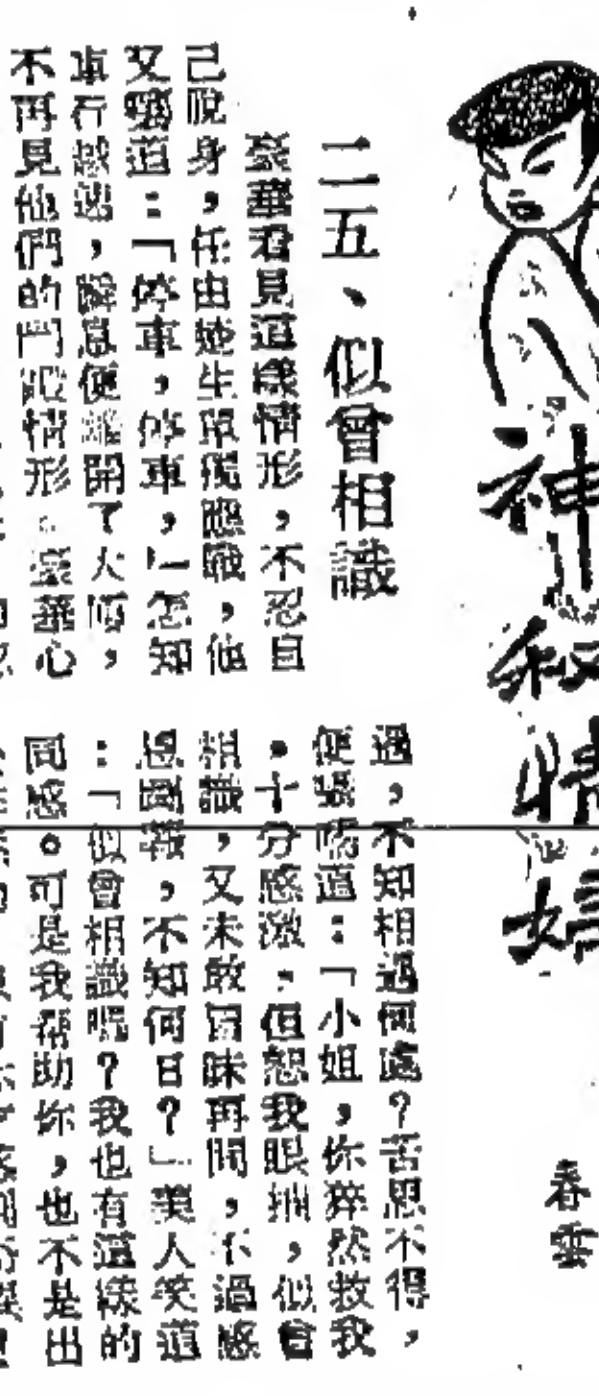 神秘情婦
春雲
二五、似曾相識
豪華君見這樣情形,不忍自
己脫身,任由她生單獨應戰,他
又嚷道:「停車,停車,」怎知
車行越遠,瞬息便離開了大廈,
不再見他們的鬥毆情形。豪華心
過,不知相遇何處?苦思不得,
便囁嚅道:「小姐,你猝然救我
,十分感激,但恕我眼拙,似曾
相識,又未敢冒昧再問,不過感
恩圖報,不知何日?」美人笑道
:「似曾相識呢?我也有這樣的
同感。可是我幫助你,也不是出